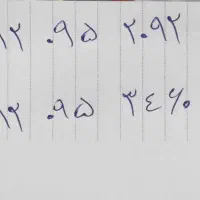 ۱۲ ۰۹۵ ۲۰۹۲
۱۲ ۰۹۵ ۳٤۶۰